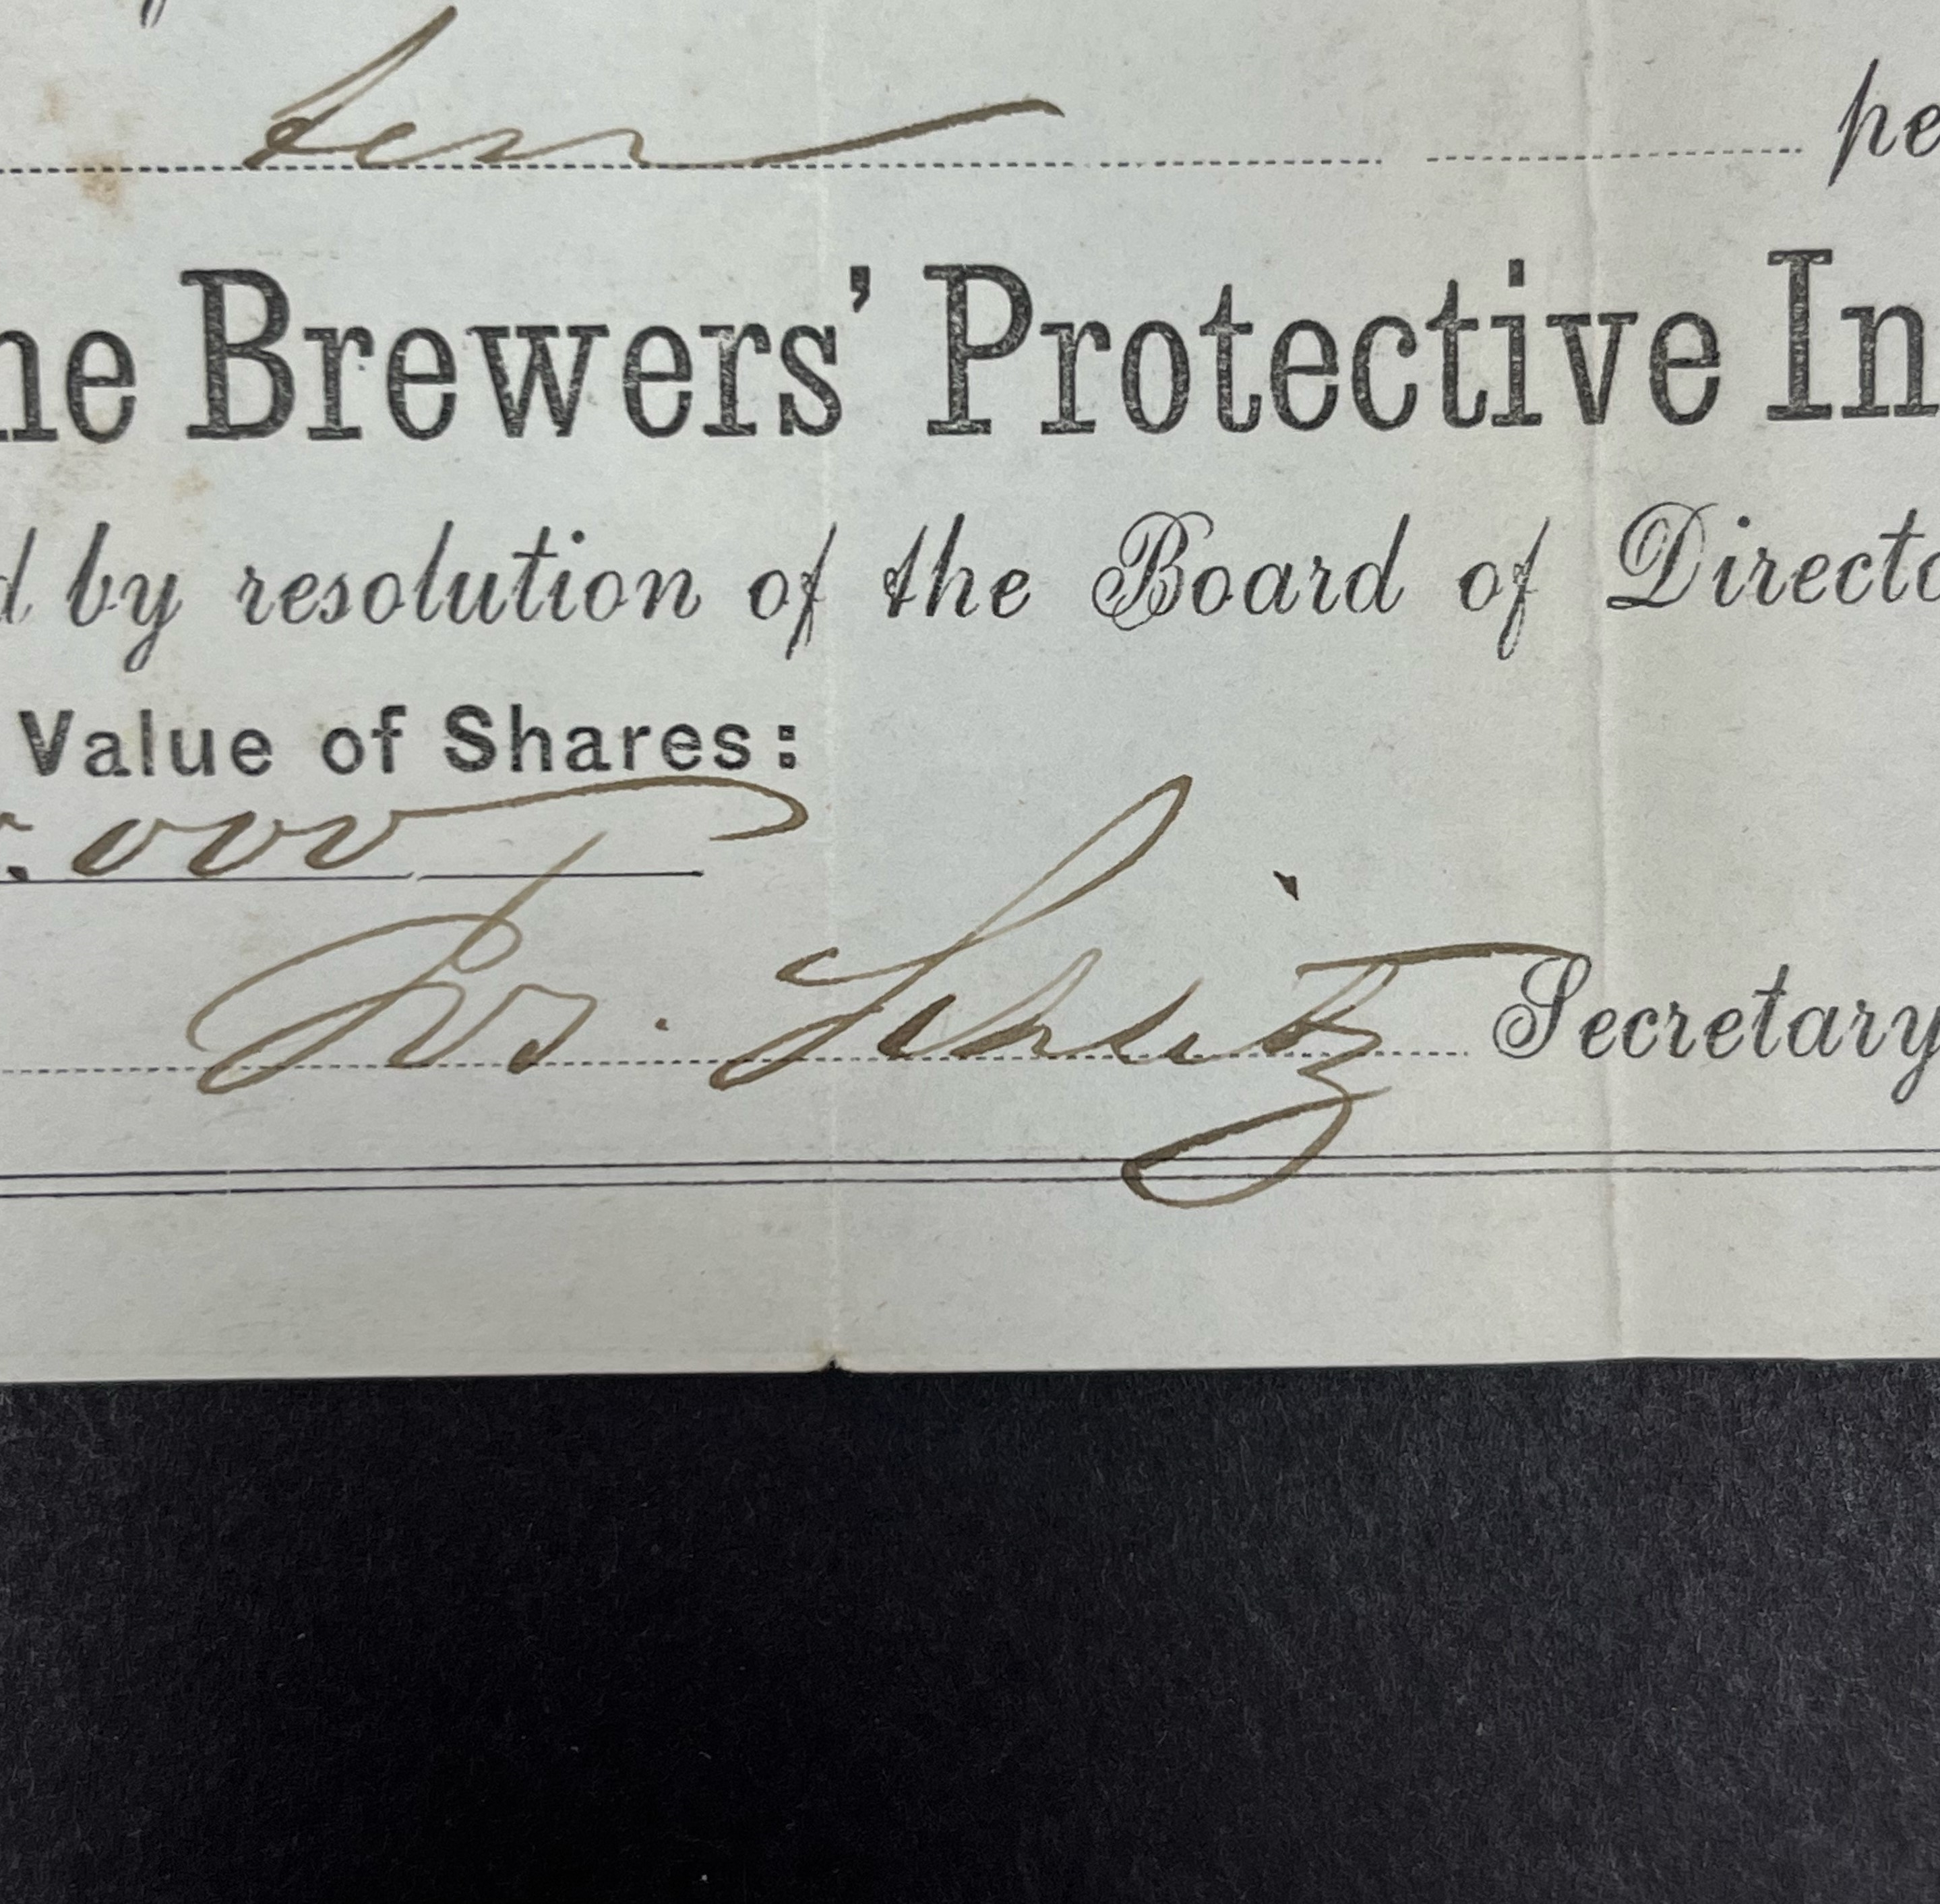 ten pe
he Brewers' Protective In
d by resolution of the Board of Directo
Value of Shares:
.000
Jos. Schlitz Secretary